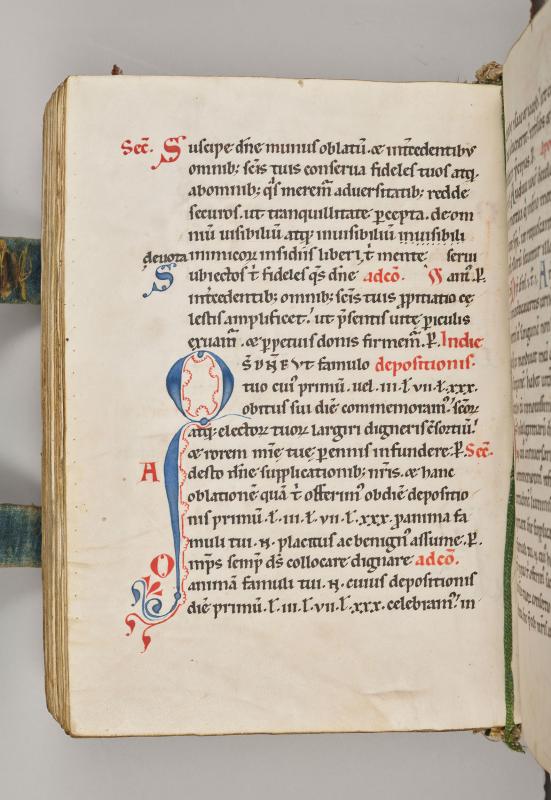 Secͭ. Suscipe dn̄e munus oblatū. ⁊ int̄cedentibus
omnib; scīs tuis conserua fideles tuos atq;
abomnib; q̄s meremͬ aduersitatib; redde
securos. ut tranquillitate ꝑcepta. deom
niū uisibiliū atq; inuisibiliū inuisibili
deuota inimicoꝝ insidiis liberi t̄ mente serui
Subiectos t̄ fideles q̄s dn̄e adcō. ant̄.ꝑ.
int̄cedentib; omnib; scīs tuis ꝓpitiatio cę
lestis amplificet. ut p̄sentis uitę ꝑiculis
exuamͬ. ⁊ ꝑpetuis donis firmemͬ. ꝑ. In die
QS DN̄E UT famulo depositionis.
tuo cuiꝰ primū. uel .iii. l̄. vii. l̄. xxx.
obitus sui diē commemoramꝰ. scōꝝ
atq; electoꝝ tuoꝝ largiri digneris cōsortiū.
⁊ rorem mīe tuę ꝑennis infundere. ꝑ. Secͭ.
Adesto dn̄e supplicationib; nr̄is. ⁊ hanc
oblationē quā t̄ offerimꝰ obdiē depositio
nis primū. l̄. iii. l̄. vii. l̄. xxx. ꝓ anima fa
muli tui. N. placitus ac benignꝰ assume. ꝑ.
Omp̄s semp̄ ds̄ collocare dignare adcō.
animā famuli tui. N. cuius depositionis
diē primū. l̄. iii. l̄. vii. l̄. xxx. celebramꝰ. in